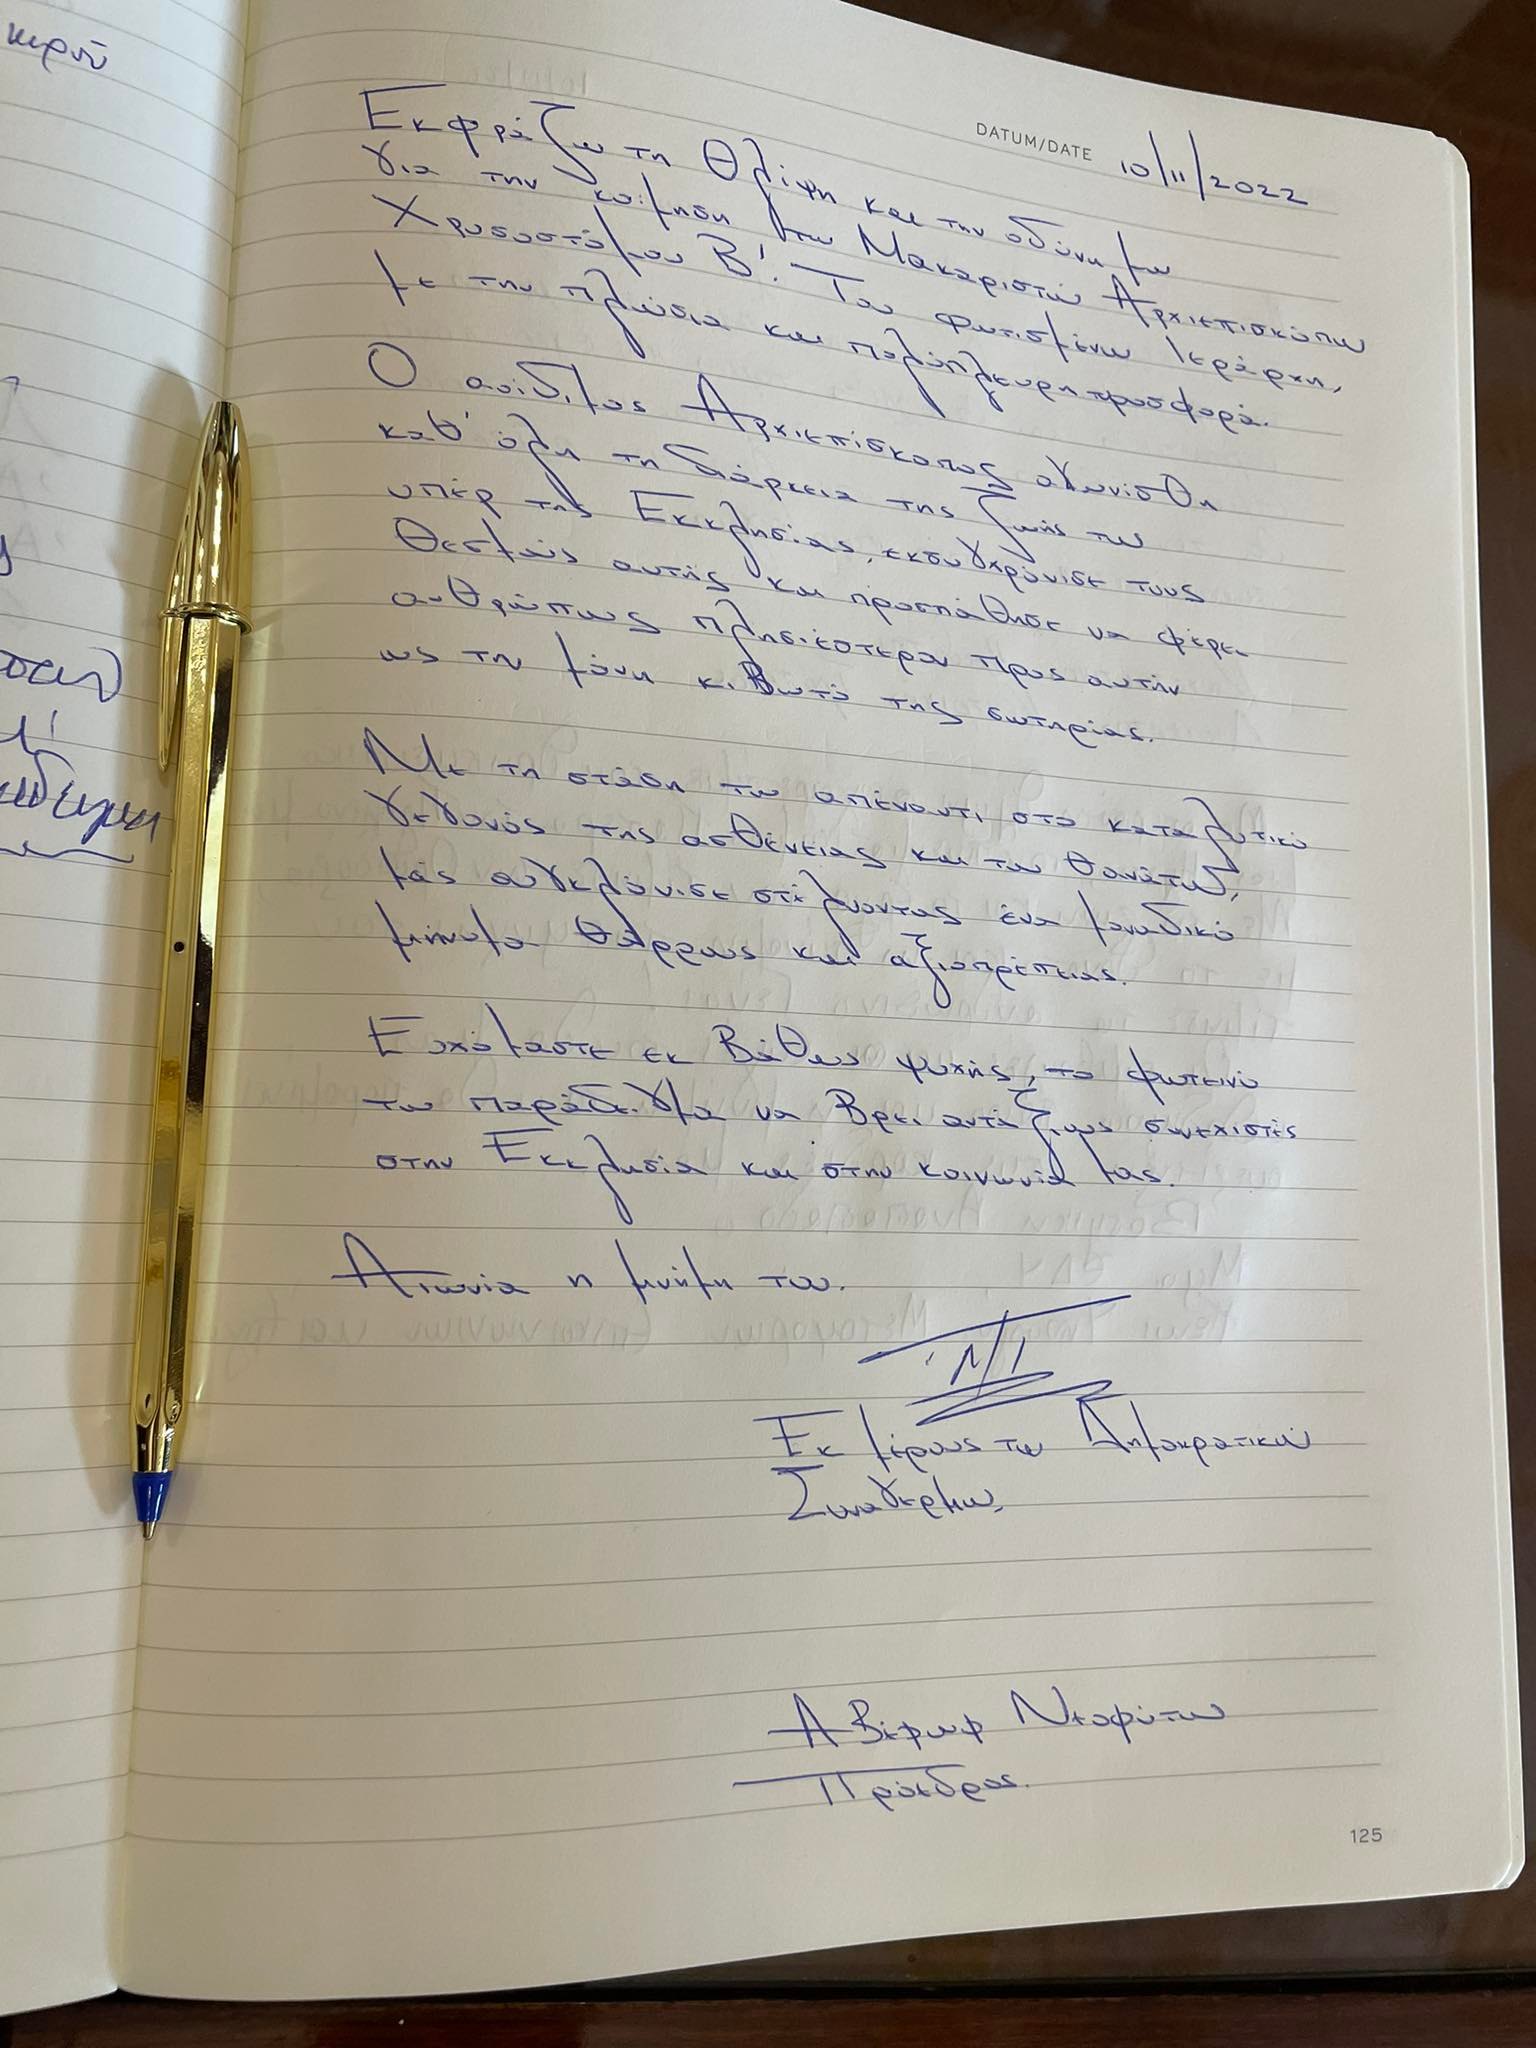 κιρού
DATUM/DATE 10/11/2022
Εκφράζω τη θλίψη και την οδύνη μου
για την κοίμηση του Μακαριστού Αρχιεπισκόπου
Χρυσοστόμου Β'. Του φωτισμένου Ιεράρχη,
με την πλούσια και πολύπλευρη προσφορά.
Ο αοίδιμος Αρχιεπίσκοπος αγωνίσθη
καθ' όλη τη διάρκεια της ζωής του
υπέρ της Εκκλησίας, εκσυγχρόνισε τους
θεσμούς αυτής και προσπάθησε να φέρει
ανθρώπους πλησιέστερα προς αυτήν
ως την μόνη κιβωτό της σωτηρίας.
Με τη στάση του απέναντι στο καταλυτικό
γεγονός της ασθένειας και του θανάτου,
μάς συγκλόνισε στέλνοντας ένα μοναδικό
μήνυμα θάρρους και αξιοπρέπειας.
Ευχόμαστε εκ βάθους ψυχής, το φωτεινό
του παράδειγμα να βρει αντάξιους συνεχιστές
στην Εκκλησία και στην κοινωνία μας.
Αιωνία η μνήμη του.
Εκ μέρους του Δημοκρατικού
Συναγερμού,
Αβέρωφ Νεοφύτου
Πρόεδρος.
125